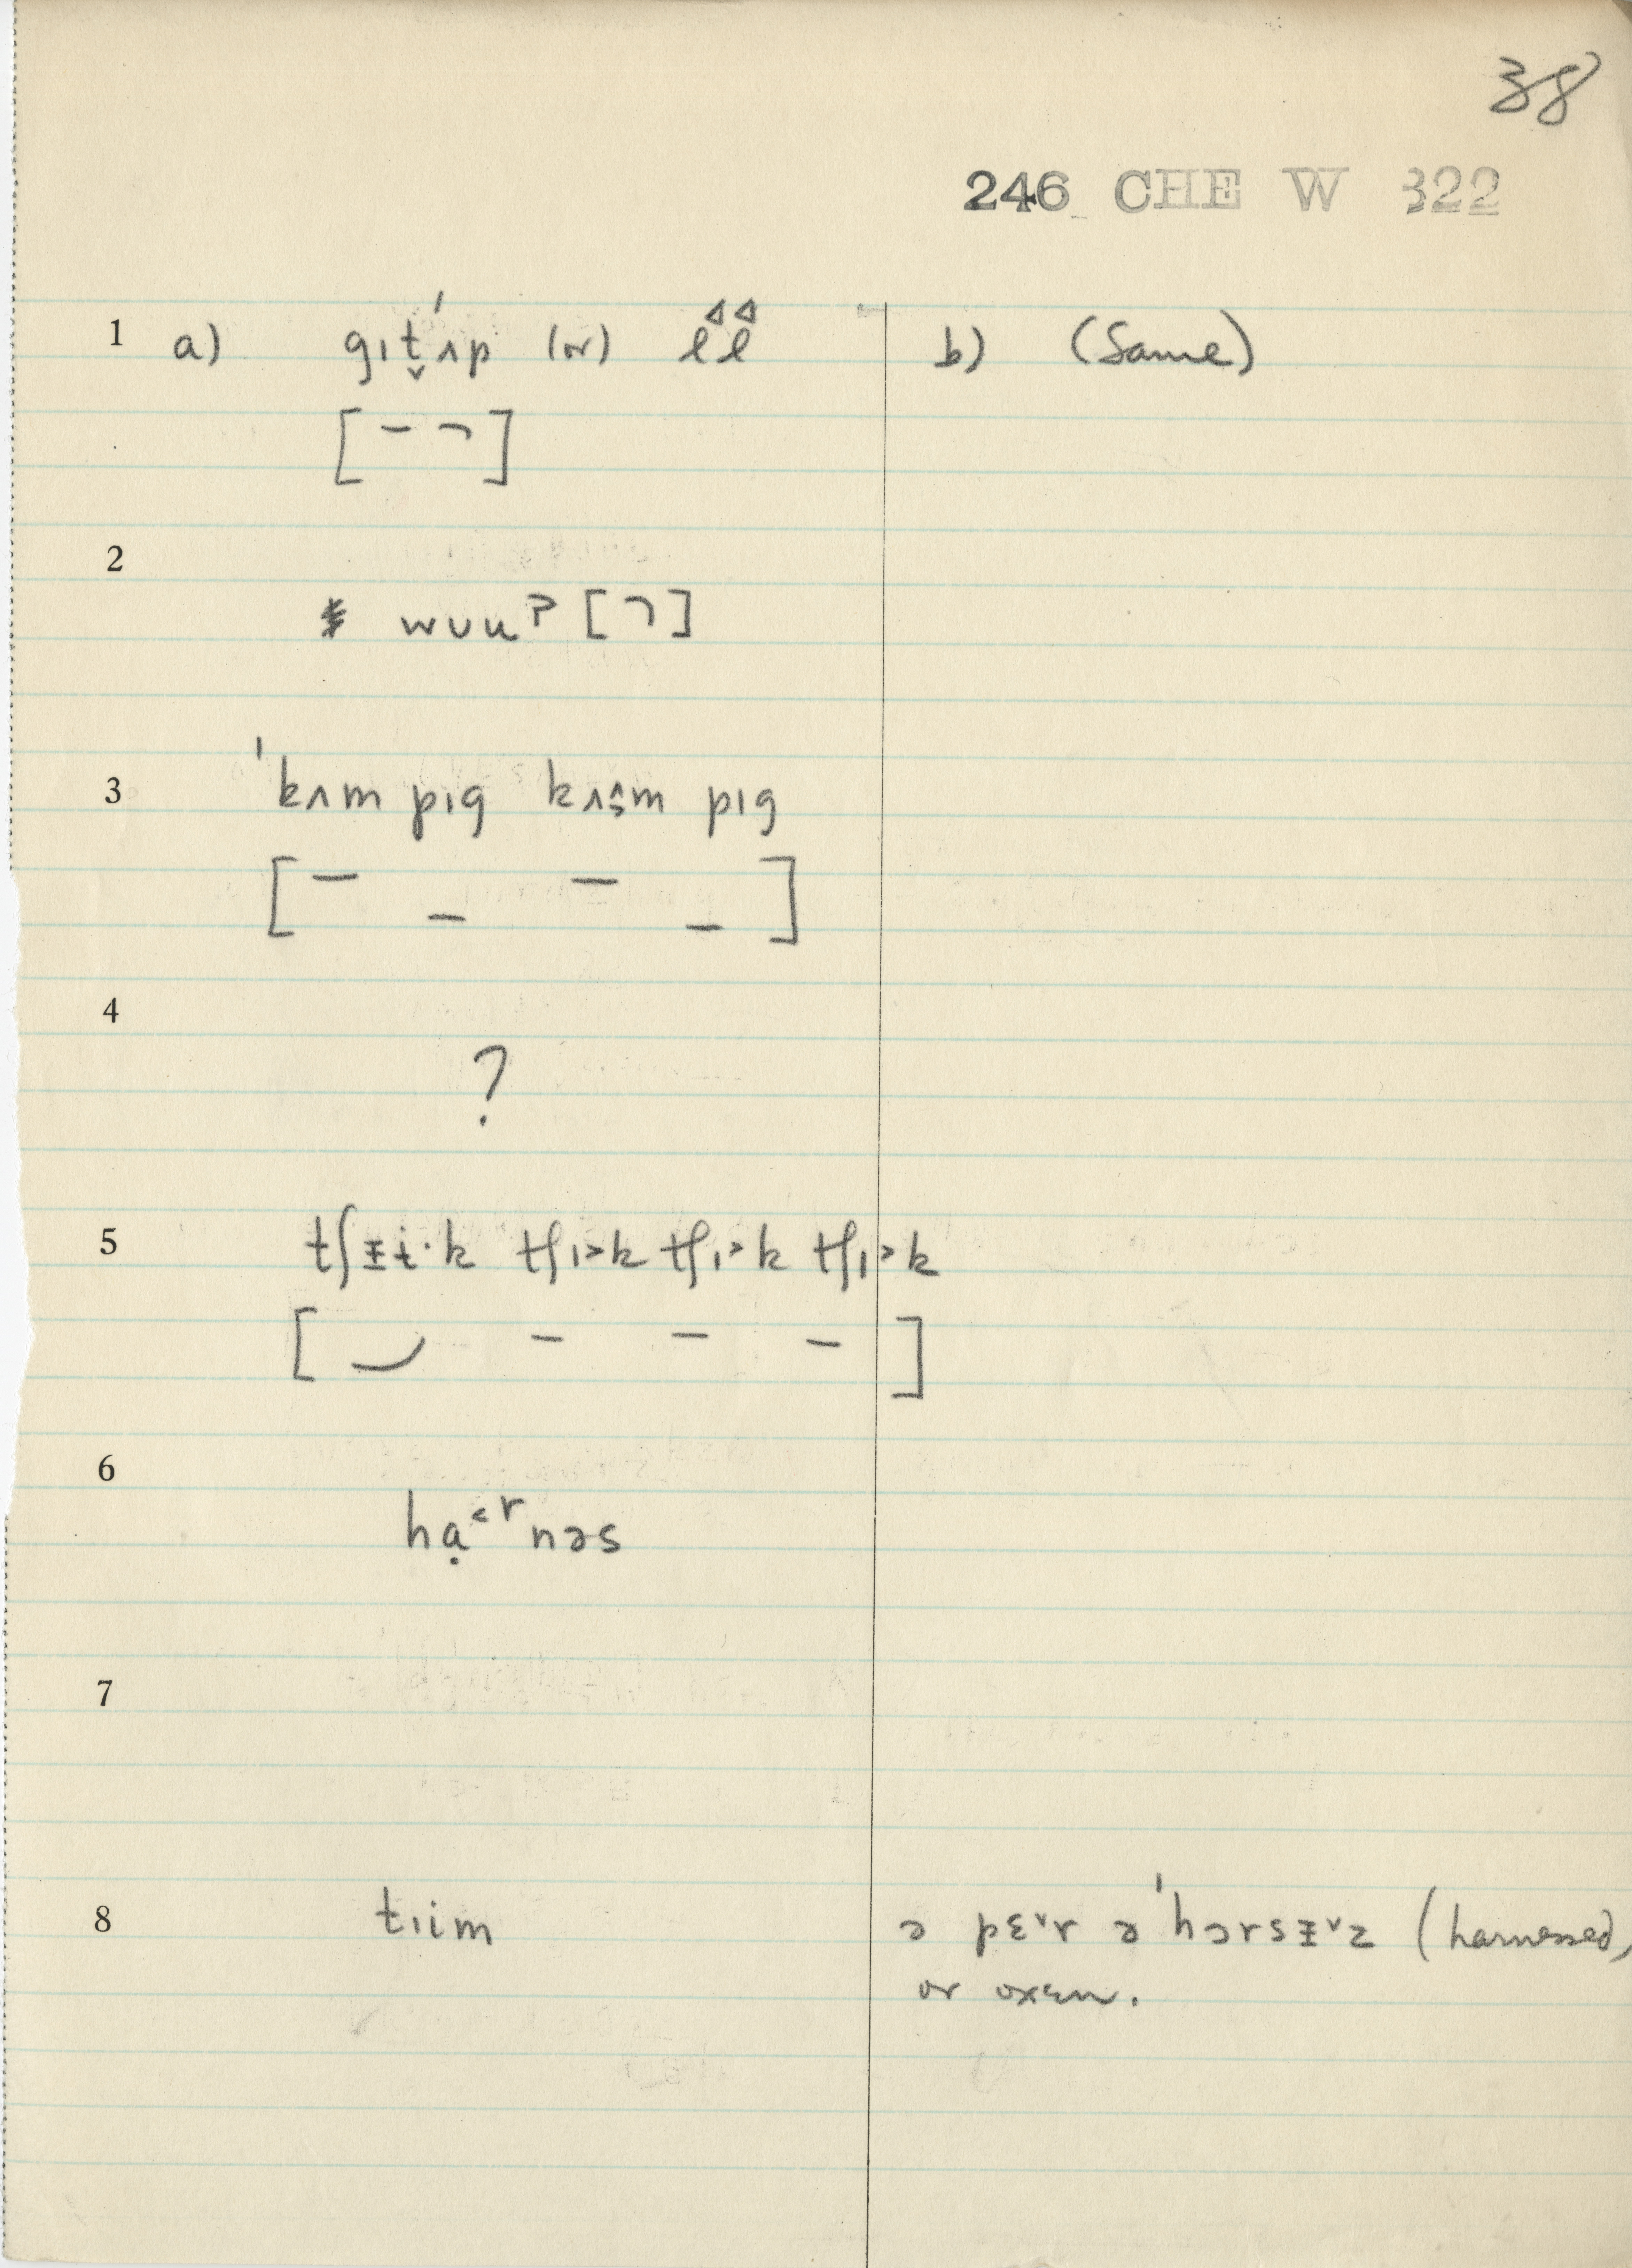 38
246 CHE W 322
1 a) gɪt̬ˈʌp (or) ll b) (Same)
[ ]
2
* wʊuʔ [ ]
3 ˈkʌm pɪg kʌm pɪg
[ ]
4
?
5 tʃᵻɨ·k tʃɪ˃k tʃɪ˃k tʃɪ˃k
[ ]
6
hạ˂ʳnəs
7
8 tɪim ə pɛ˅r ə ˈhɔrsᵻ˅z (harnessed,
or oxen.